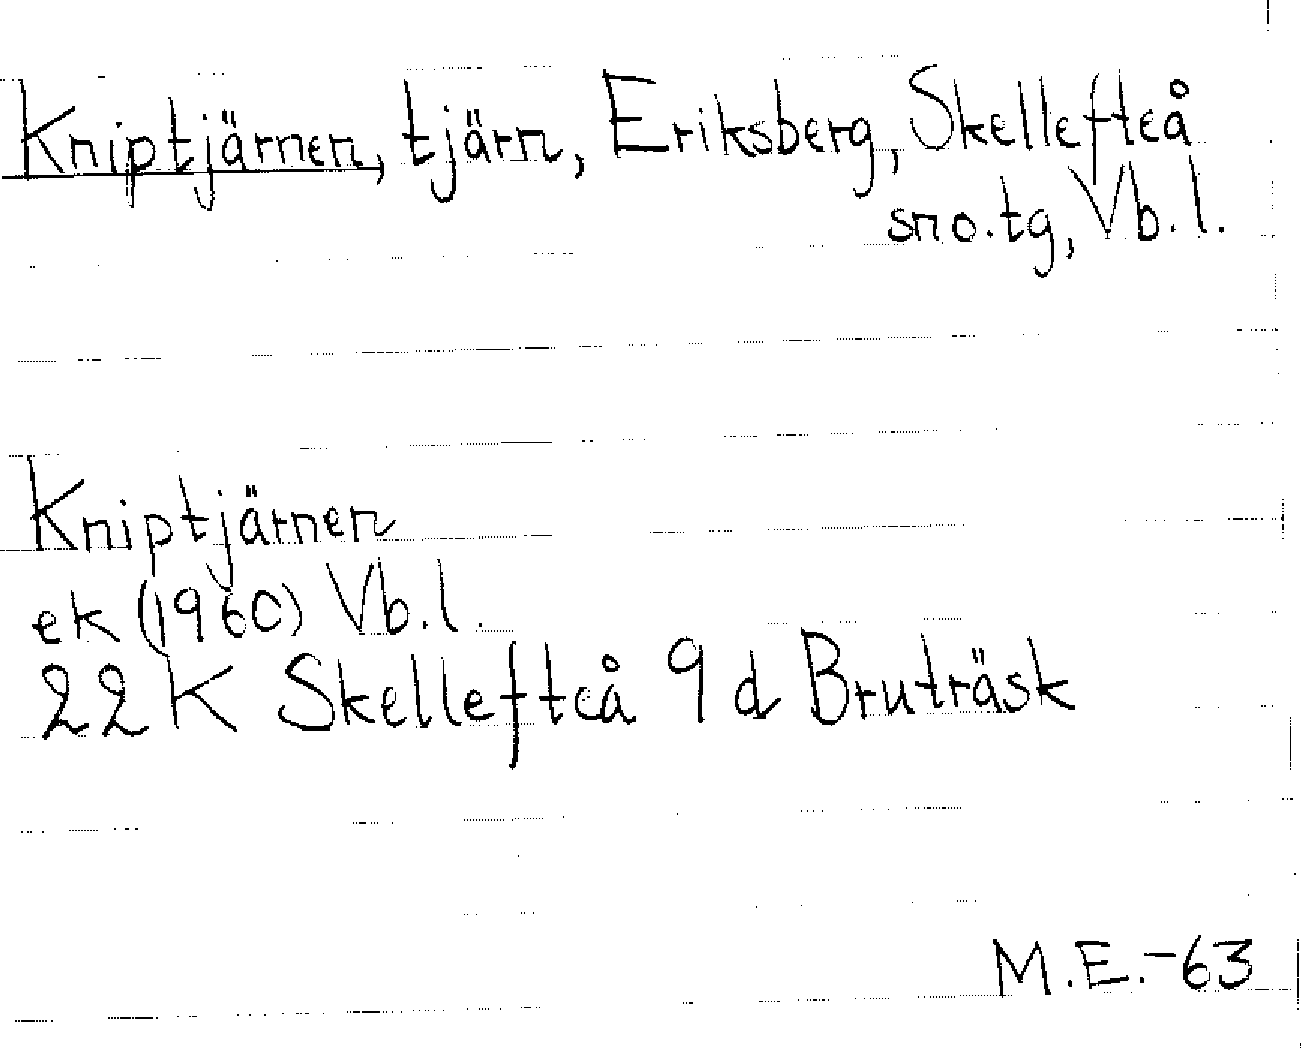 Kniptjärnen, tjärn, Eriksberg, Skellefteå
sno.tg, Vb.l.
Kniptjärnen
ek (1960) Vb.l.
22 K Skellefteå 9 d Bruträsk
M.E.-63